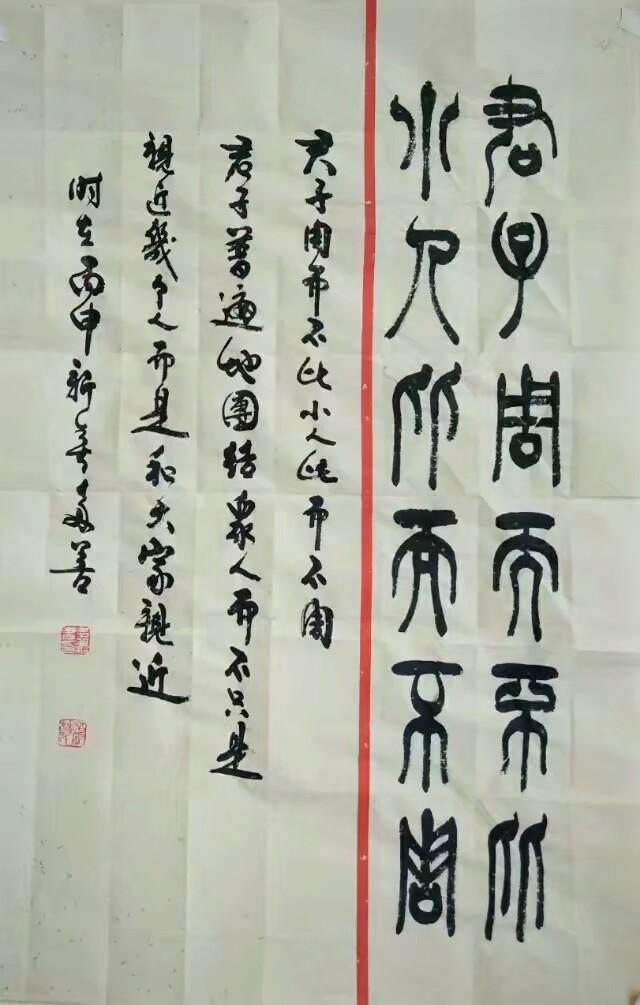 君子周而不比
小人比而不周
君子周而不比小人比而不周
君子普遍地團结衆人而不只是
親近幾个人而是和大家親近
时在丙申新春 善